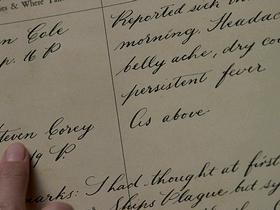 & Where
Cole
Reported sick
morning. Headac
belly ache, dry co
persistent fever
As above
teven Corey
19 P.
marks: I had thought at first
Ships Plague but sy